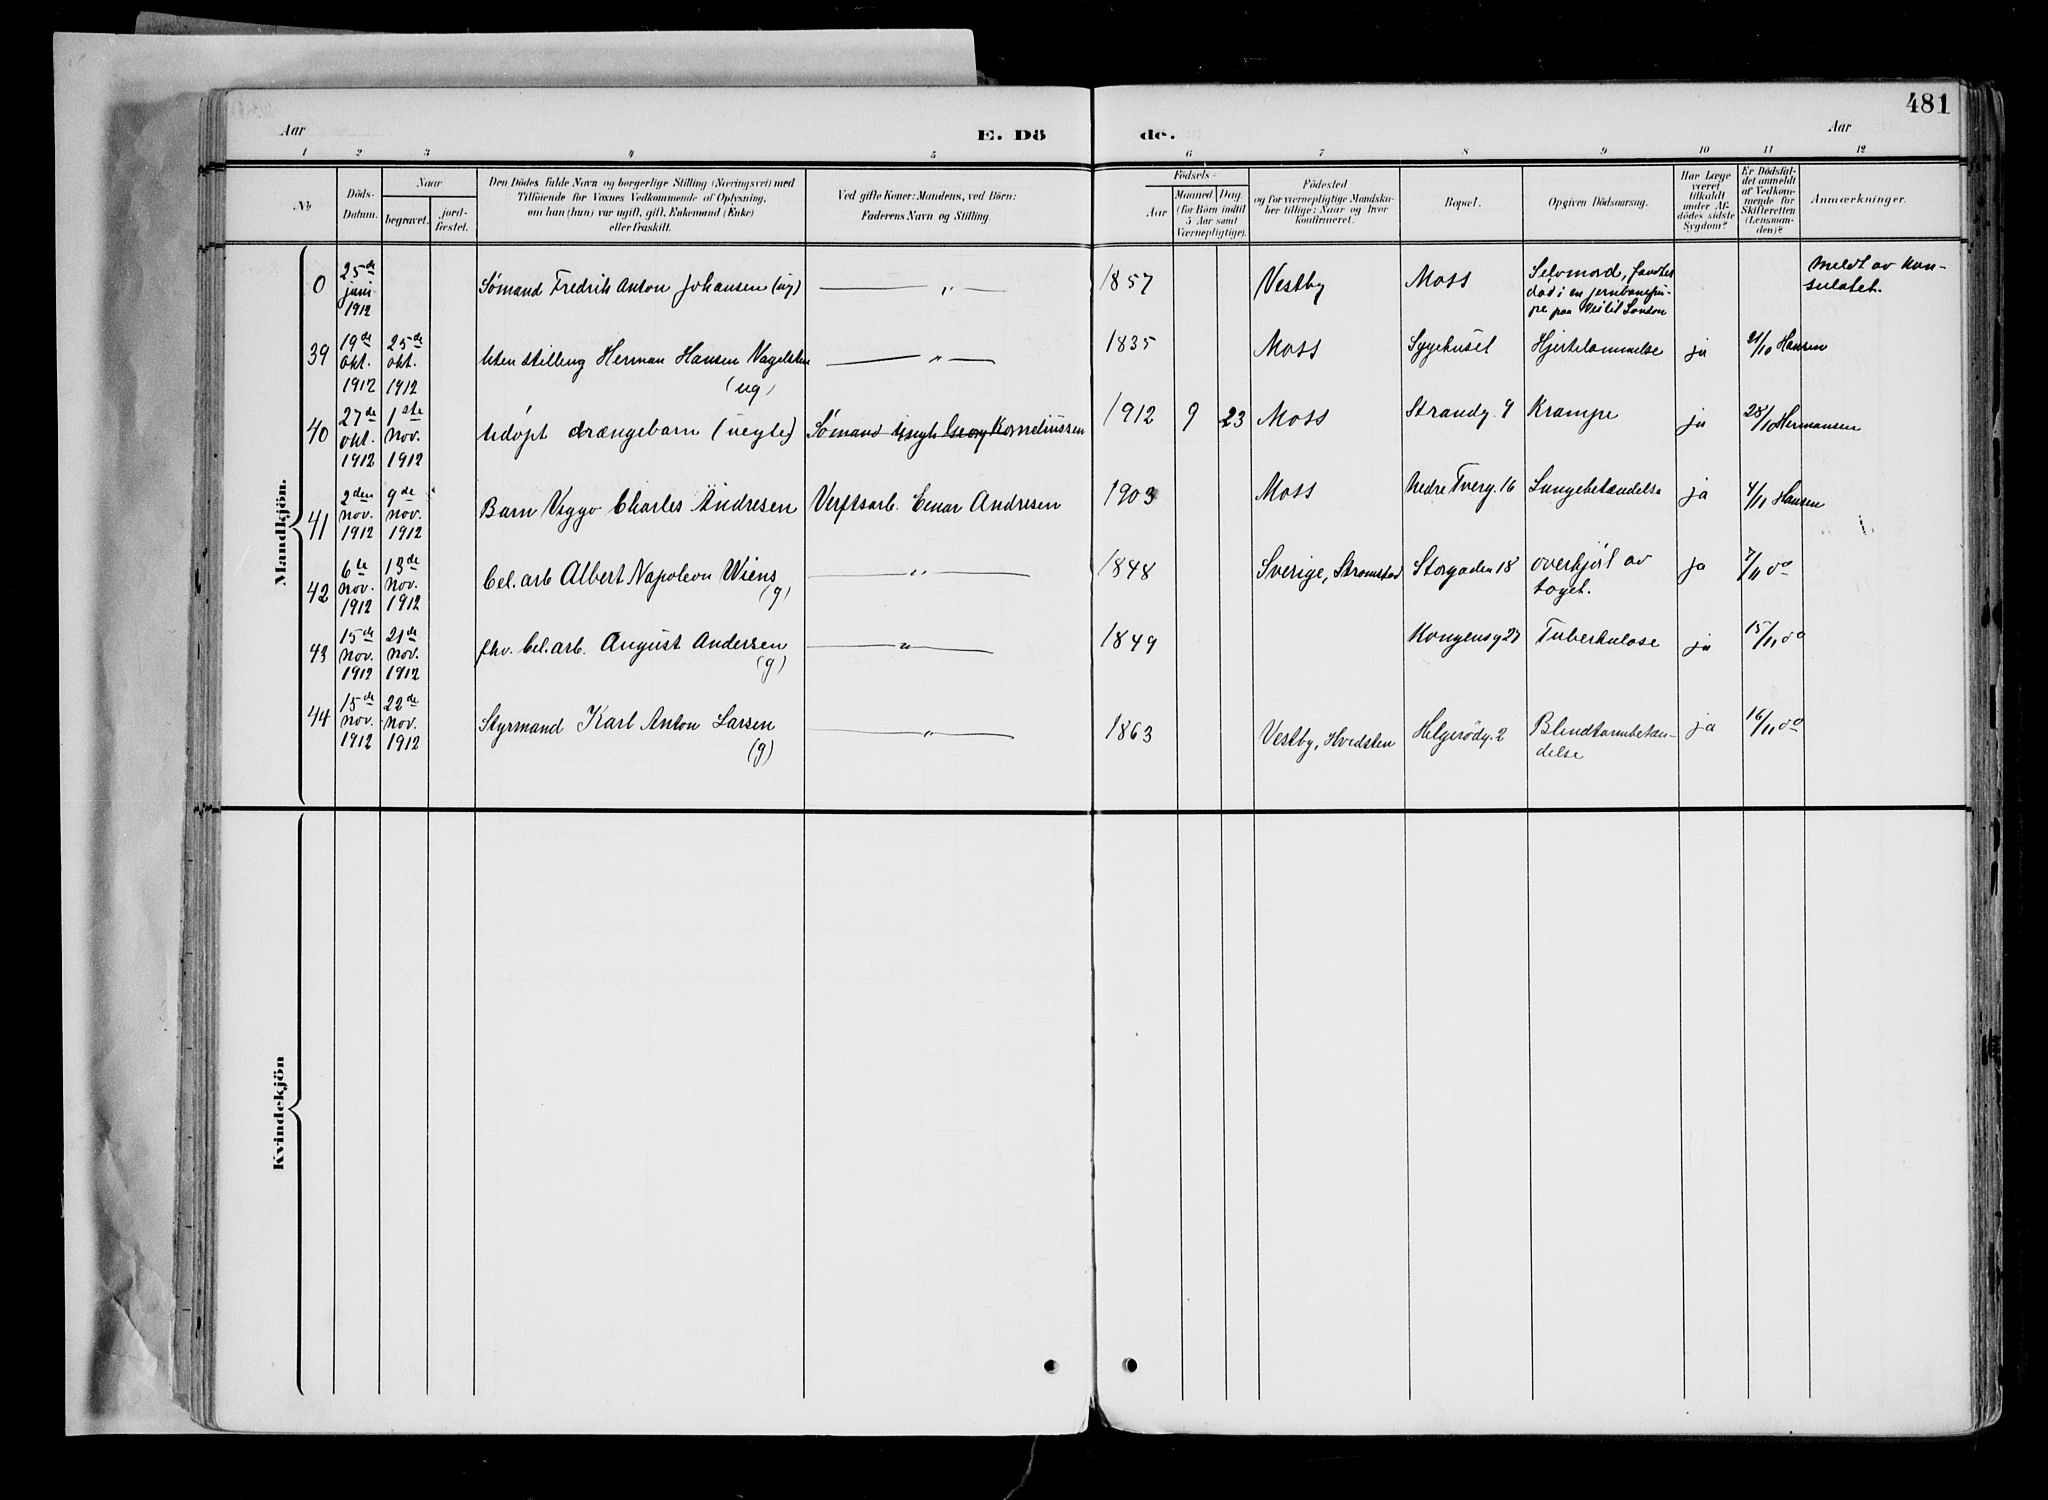 481
Aar
E. Dö
de.
Aar
1 2 3 4 5 6 7 8 9 10 11 12
No
Döds-Datum.
Naar
begravet.
jord-fæstet.
Den Dödes fulde Navn og borgerlige Stilling (Næringsvei) med
Tilföiende for Voxnes Vedkommende af Oplysning,
om han (hun) var ugift, gift, Enkemand (Enke)
eller fraskilt.
Ved gifte Koner: Mandens, ved Börn:
Faderens Navn og Stilling.
Födsels-
Aar
Maaned
Dag
(for Börn indtil
5 Aar samt
Værnepligtige).
Födested
og for værnepligtige Mandskaber tillige: Naar og hvor
konfirmeret.
Bopæl.
Opgiven Dödsaarsag.
Har Læge
været
tilkaldt
under Af-
dödes sidste
Sygdom?
Er Dödsfal-
det anmeldt
af Vedkom-
mende for
Skifteretten
(Lensman-
den)?
Anmærkninger.
Mandkjön.
0 25de juni 1912 Sømand Fredrik Anton Johansen (ug) — " — 1857 Vestby Moss Selvmord, fandtes død i en jernbanekupe paa Vei til London meldt av Konsulatet.
39 19de okt. 1912 25de okt. 1912 Uten stilling Herman Hansen Vagelsten (ug) — " — 1835 Moss Sygehuset Hjertelammelse ja 21/10 Hansen
40 27de okt. 1912 1ste nov. 1912 Udøpt drængebarn (uegte) Sømand Georg Korneliussen 1912 9 23 Moss Strandg. 9 Krampe ja 28/10 Hermansen
41 2den nov. 1912 9de nov. 1912 Barn Viggo Charles Andresen Verftsarb. Einar Andresen 1903 Moss Nedre Tverg. 16 Lungebetændelse ja 4/11 Hansen
42 6te nov. 1912 13de nov. 1912 Cel. arb Albert Napoleon Wiens (g) — " — 1848 Sverige, Strømstad Storgaden 18 overkjørt av toget. ja 7/11 do
43 15de nov. 1912 21de nov. 1912 fhv. Cel. arb. August Andersen (g) — " — 1849 Kongensg 27 Tuberkulose ja 15/11 do
44 15de nov. 1912 22de nov. 1912 Styrmand Karl Anton Larsen (g) — " — 1863 Vestby, Hvidsten Helgerödg. 2 Blindtarmbetændelse ja 16/11 do
Kvindekjön